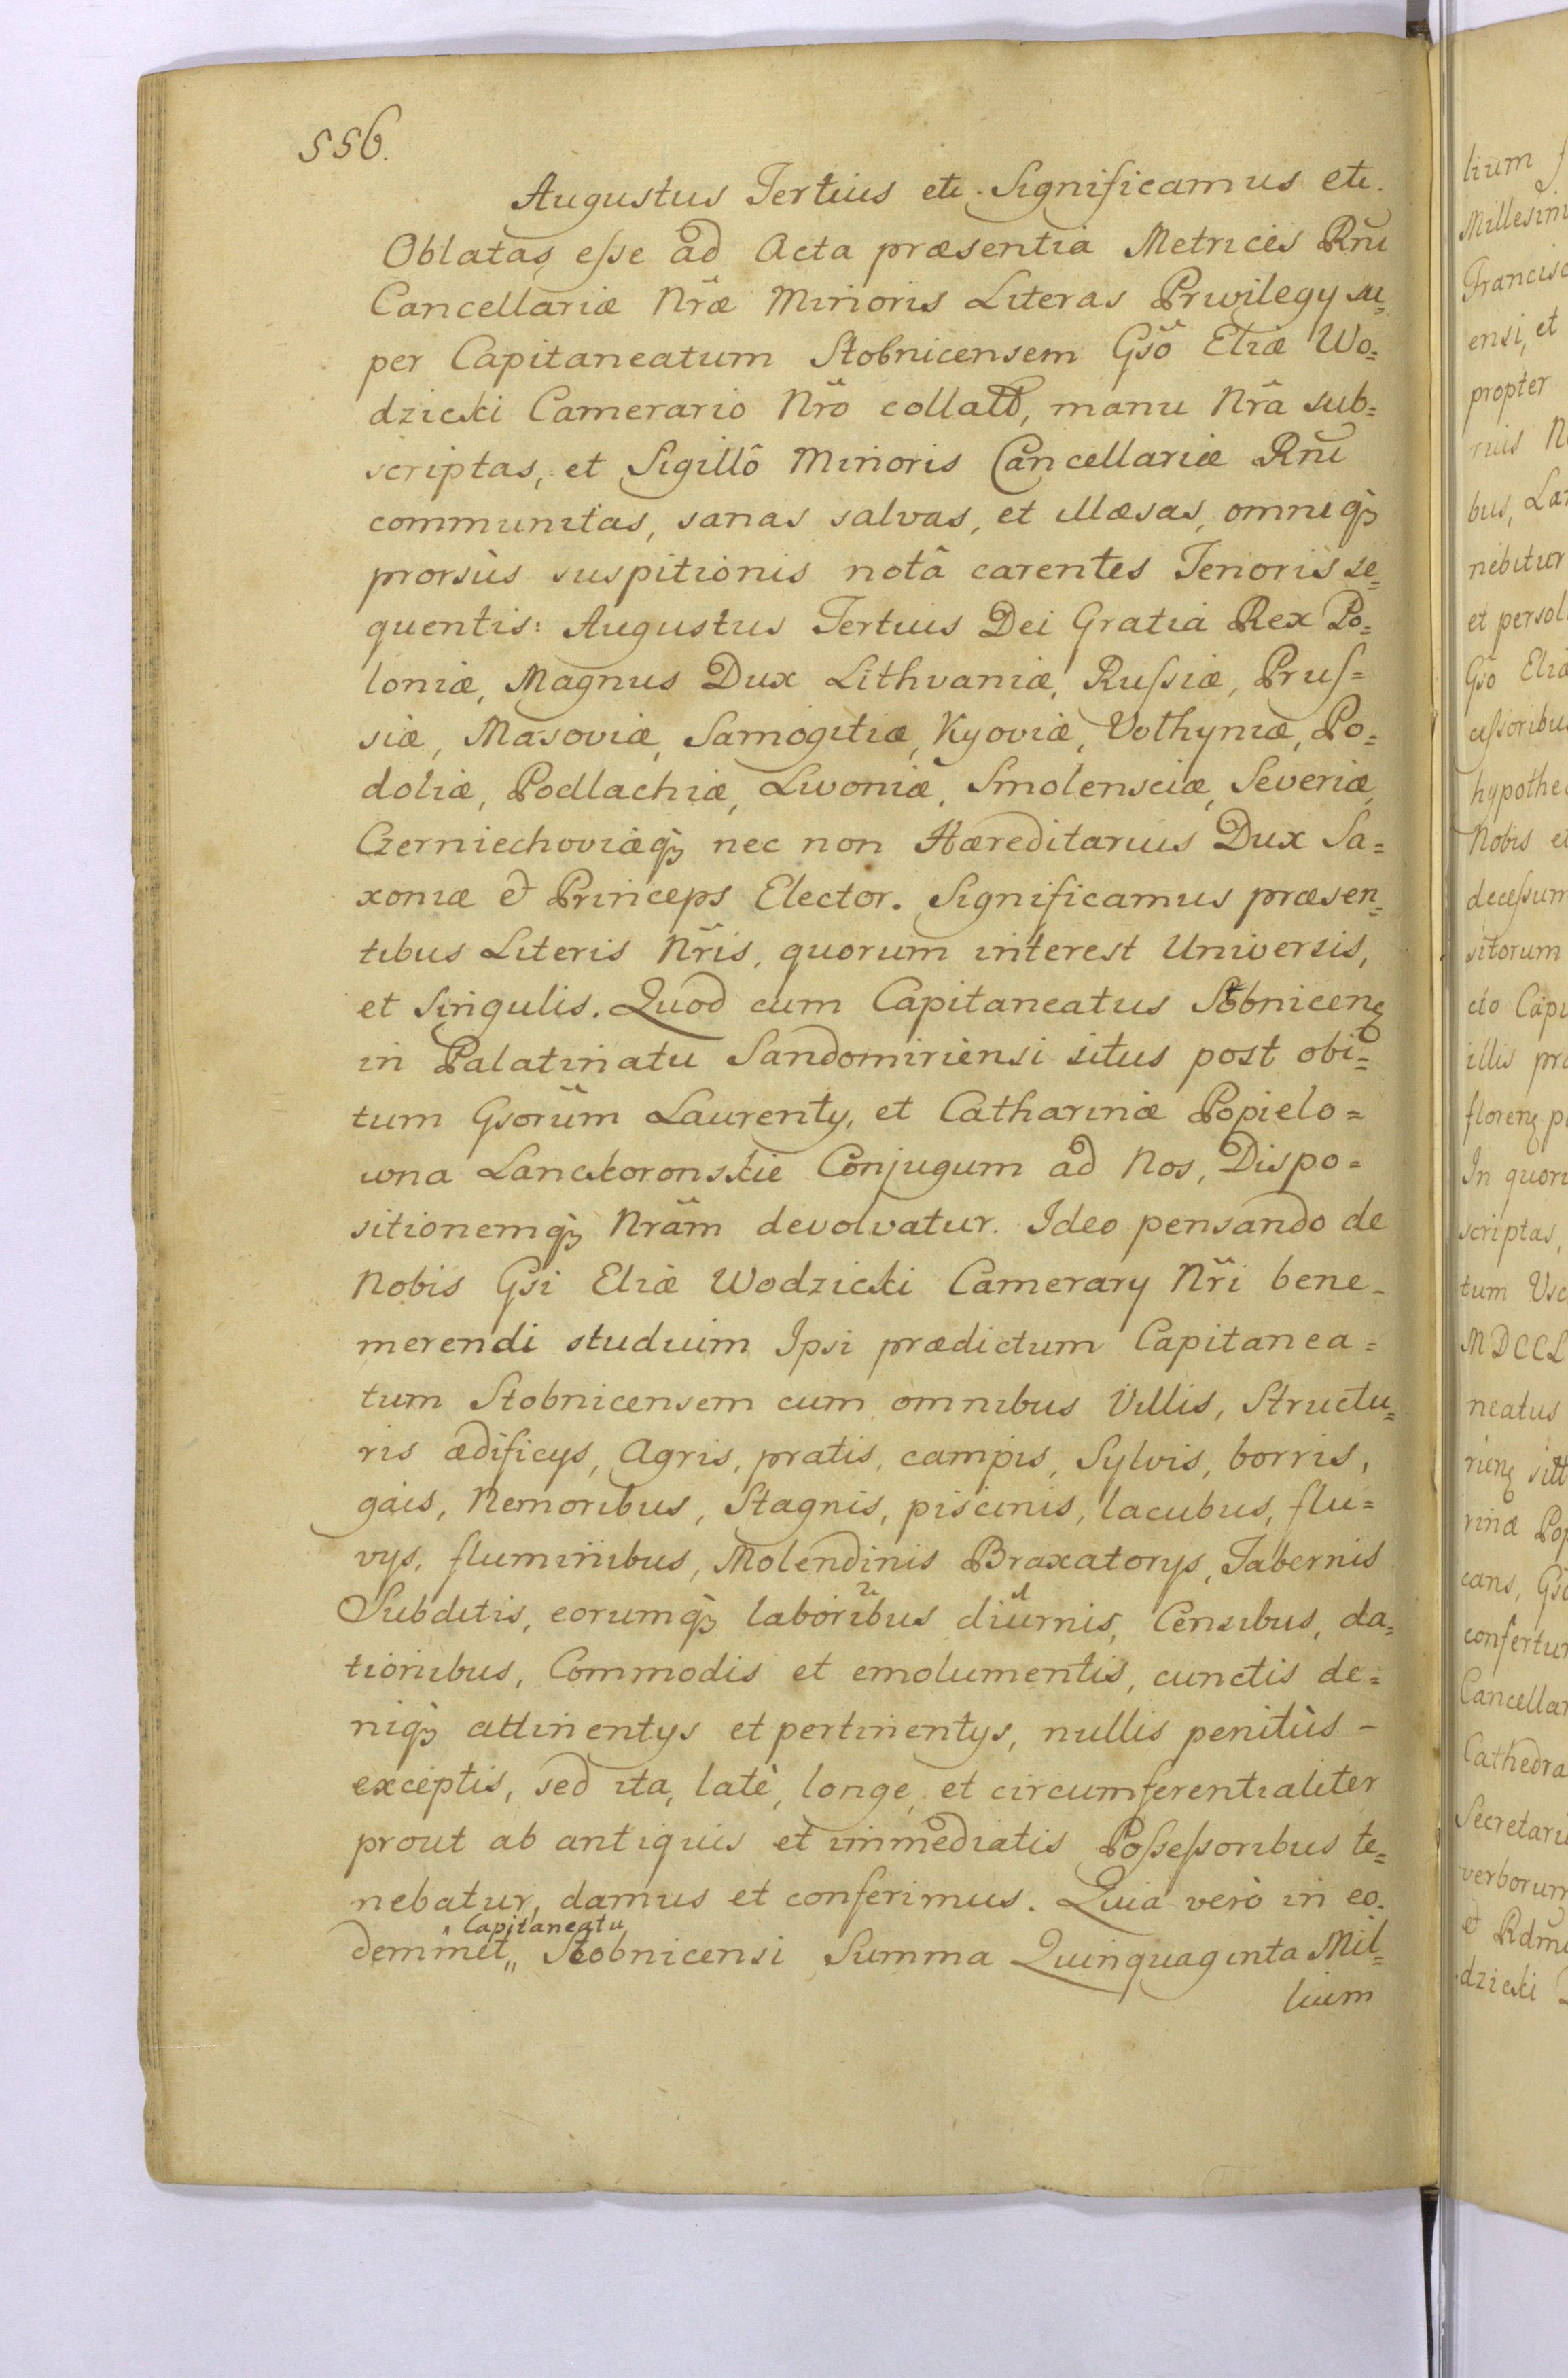 556.
Augustus Tertius etc. Significamus etc.
Oblatas esse ad Acta præsentia Metrices Rñi
Cancellariæ Nr̃æ Minoris Literas Privilegy su=
per Capitaneatum Stobnicensem Gsõ Eliæ Wo=
dzicki Camerario Nr̃o collatô, manu Nr̃a sub=
scriptas, et Sigillô Minoris Cancellariæ Rñi
communitas, sanas salvas, et illæsas, omniqꝫ
prorsùs suspitionis notâ carentes Tenoris se=
quentis: Augustus Tertius Dei Gratia Rex Po=
loniæ, Magnus Dux Lithvaniæ, Russiæ, Prus=
siæ, Masoviæ, Samogitiæ, Kyoviæ, Volhyniæ, Po=
doliæ, Podlachiæ, Livoniæ, Smolensciæ, Severiæ,
Czerniechoviæqꝫ nec non Hæreditarius Dux Sa=
xoniæ et Princeps Elector. Significamus præsen=
tibus Literis Nr̃is, quorum interest Universis,
et Singulis. Quod cum Capitaneatus Stobnicenꝫ
in Palatinatu Sandomiriensi situs post obi=
tum Gsorum̃ Laurenty, et Catharinæ Popielo=
wna Lanckoronskie Conjugum ad Nos, Dispo=
sitionemqꝫ Nrãm devolvatur. Ideo pensando de
Nobis Gsi Eliæ Wodzicki Camerary Nr̃i bene-
merendi studium Ipsi prædictum Capitanea=
tum Stobnicensem cum omnibus Villis, Structu=
ris ædificys, Agris, pratis, campis, Sylvis, borris,
gais, Nemoribus, Stagnis, piscinis, lacubus, flu=
vys, fluminibus, Molendinis Braxatorys, Tabernis
Subditis, eorumqꝫ laboribus diurnis, Censibus, da=
tionibus, Commodis et emolumentis, cunctis de=
niqꝫ attinentys et pertinentys, nullis penitùs -
exceptis, sed ita, latè, longe, et circumferentialiter
prout ab antiquis et immediatis Possessoribus te=
nebatur, damus et conferimus. Quia verò in eo.
Capitaneatu
demmet,, Stobnicensi Summa Quinquaginta Mil=
lium
lium
Millesim
Francisc
ensi, et
propter
bus, Lan
nebitur
et persol
Gsõ Eliæ
cessoribu
hypothec
Nobis et
decessum
sitorum
cto Capi
illis pro
florenꝫ p
In quoru
scriptas,
tum
MDCCL
neatus
rienꝫ sit
rinæ Pop
cans, Gsõ
confertur
Cancellar
Cathedra
Secretari
verborum
et Rdmi
dzicki